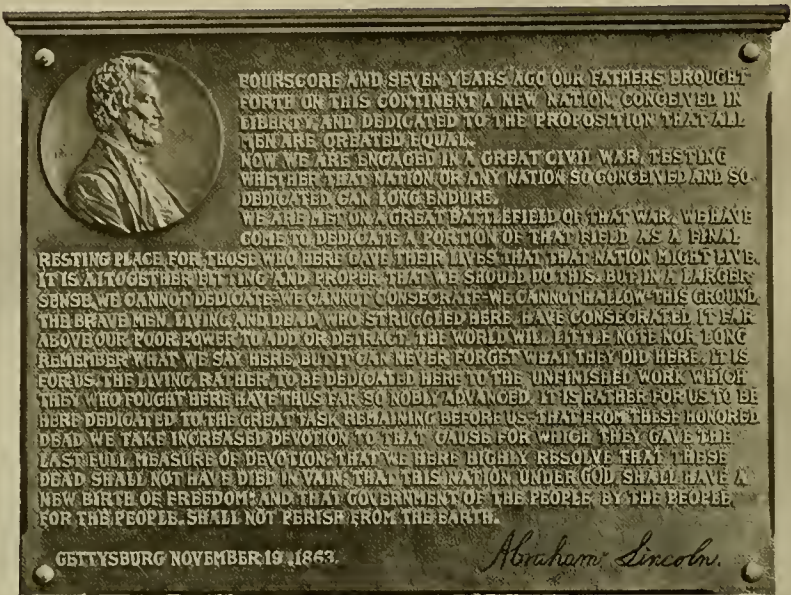 FOURSCORE AND SEVEN YEARS AGO OUR FATHERS BROUGHT
FORTH ON THIS CONTINENT A NEW NATION, CONCEIVED IN
LIBERTY, AND DEDICATED TO THE PROPOSITION THAT ALL
MEN ARE CREATED EQUAL.
NOW WE ARE ENGAGED IN A GREAT CIVIL WAR, TESTING
WHETHER THAT NATION OR ANY NATION SO CONCEIVED AND SO
DEDICATED CAN LONG ENDURE.
WE ARE MET ON A GREAT BATTLEFIELD OF THAT WAR. WE HAVE
COME TO DEDICATE A PORTION OF THAT FIELD AS A FINAL
RESTING PLACE FOR THOSE WHO HERE GAVE THEIR LIVES THAT THAT NATION MIGHT LIVE.
IT IS ALTOGETHER FITTING AND PROPER THAT WE SHOULD DO THIS. BUT IN A LARGER
SENSE, WE CANNOT DEDICATE-WE CANNOT CONSECRATE-WE CANNOT HALLOW-THIS GROUND.
THE BRAVE MEN, LIVING AND DEAD, WHO STRUGGLED HERE, HAVE CONSECRATED IT FAR
ABOVE OUR POOR POWER TO ADD OR DETRACT. THE WORLD WILL LITTLE NOTE NOR LONG
REMEMBER WHAT WE SAY HERE, BUT IT CAN NEVER FORGET WHAT THEY DID HERE. IT IS
FOR US, THE LIVING, RATHER, TO BE DEDICATED HERE TO THE UNFINISHED WORK WHICH
THEY WHO FOUGHT HERE HAVE THUS FAR SO NOBLY ADVANCED. IT IS RATHER FOR US TO BE
HERE DEDICATED TO THE GREAT TASK REMAINING BEFORE US-THAT FROM THESE HONORED
DEAD WE TAKE INCREASED DEVOTION TO THAT CAUSE FOR WHICH THEY GAVE THE
LAST FULL MEASURE OF DEVOTION; THAT WE HERE HIGHLY RESOLVE THAT THESE
DEAD SHALL NOT HAVE DIED IN VAIN; THAT THIS NATION, UNDER GOD, SHALL HAVE A
NEW BIRTH OF FREEDOM; AND THAT GOVERNMENT OF THE PEOPLE, BY THE PEOPLE,
FOR THE PEOPLE, SHALL NOT PERISH FROM THE EARTH.
GETTYSBURG NOVEMBER 19, 1863.
Abraham Lincoln.